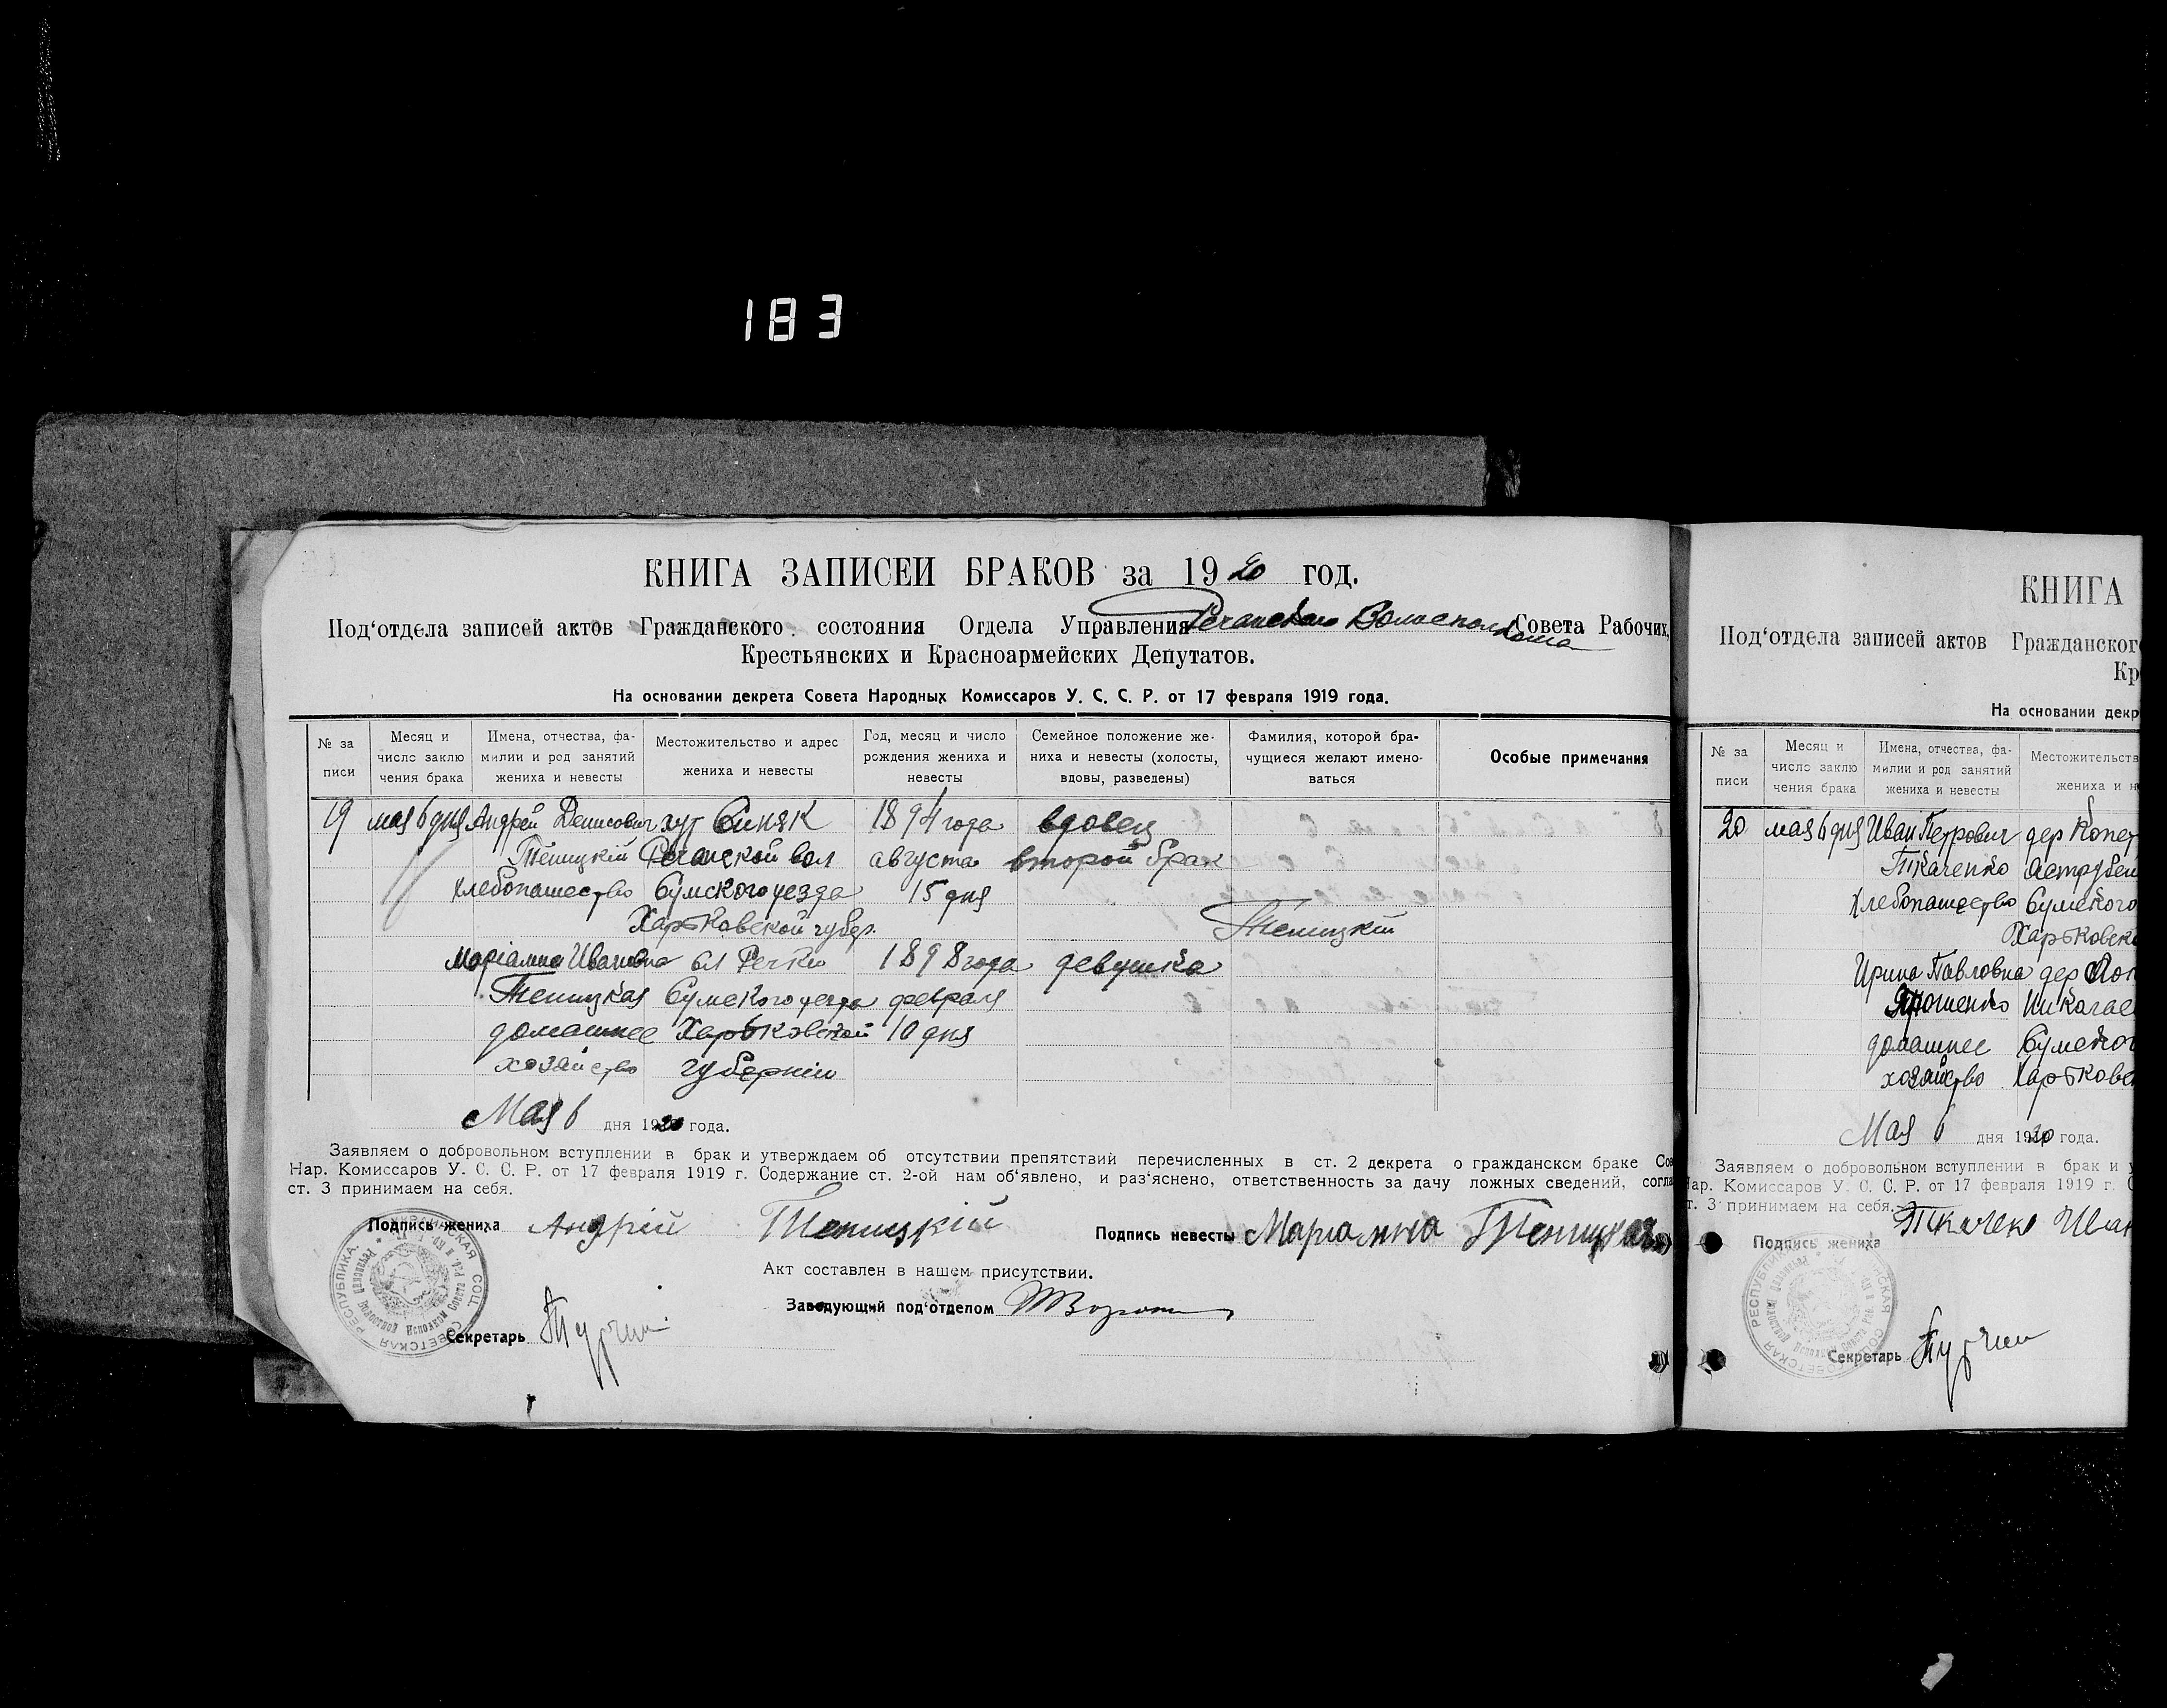 183
КНИГА ЗАПИСЕЙ БРАКОВ за 1920 год.
Под‘отдела записей актов Гражданского состояния Отдела Управления Совета Рабочих,
Крестьянских и Красноармейских Депутатов.
На основании декрета Совета Народных Комиссаров У. С. С. Р. от 17 февраля 1919 года.
№ за писи
Месяц и число заклю чения брака
Имена, отчества, фа- милии и род занятий жениха и невесты
Местожительство и адрес жениха и невесты
Год, месяц и число рождения жениха и невесты
Семейное положение же- ниха и невесты (холосты, вдовы, разведены)
Фамилия, которой бра- чущиеся желают имено- ваться
Особые примечания
19 мая 6 дня Андрей Денисович хут Синяк 1894 года вдовец
Теницкій Речанской вол августа второй брак
хлебопашество Сумского уезда 15 дня
Харьковской губер. Теницкій
Маріамна Ивановна сл Речки 1898 года девушка
Теницкая Сумского уезда февраля
домашнее Харьковской 10 дня
хозайство губерніи
Мая 6 дня 1920 года.
Заявляем о добровольном вступлении в брак и утверждаем об отсутствии препятствий перечисленных в ст. 2 декрета о гражданском браке Сов
Нар. Комиссаров У. С. С. Р. от 17 февраля 1919 г. Содержание ст. 2-ой нам об‘явлено, и раз‘яснено, ответственность за дачу ложных сведений, согла
ст. 3 принимаем на себя.
Подпись жениха Андрій Теницкій Подпись невесты Маріамна
Акт составлен в нашем присутствии.
Заведующий под‘отделом
Секретарь
КНИГА
Под‘отдела записей актов Гражданског
Кр
На основании декр
№ за писи
Месяц и число заклю чения брака
Имена, отчества, фа- милии и род занятий жениха и невесты
Местожительств жениха и н
20 мая 6 дня Иван Петрович дер Копет
Ткаченко
хлебопашество Сумского
Харьковско
Ирина Павловна дер
Ярошенко Николае
домашнее Сумског
хозайство Харьковс
Мая 6 дня 1920 года.
Заявляем о добровольном вступлении в брак и у
Нар. Комиссаров У. С. С. Р. от 17 февраля 1919 г. С
т. 3 принимаем на себя.
Подпись жениха Ткаченк Иван
Секретарь